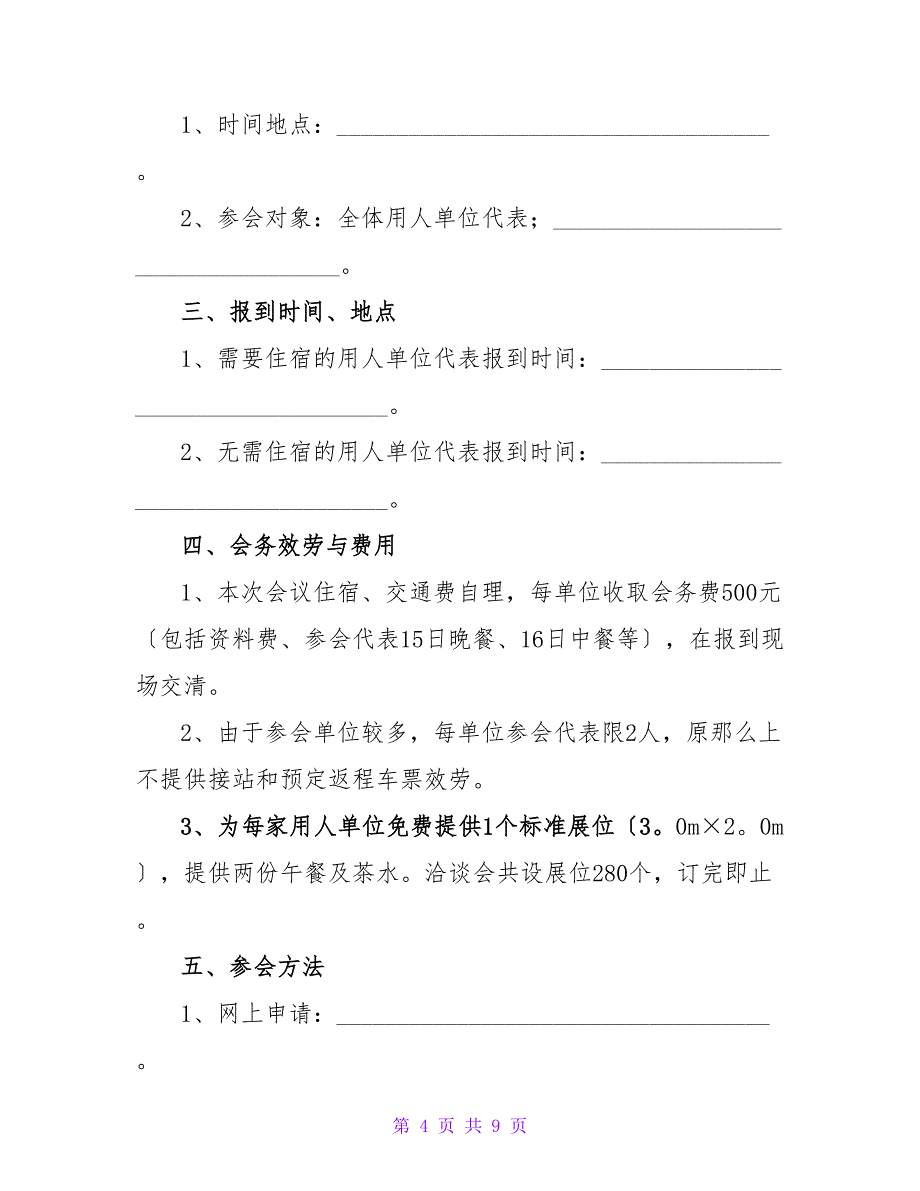 1、时间地点：____________________________________
。
2、参会对象：全体用人单位代表；___________________
_________________。
三、报到时间、地点
1、需要住宿的用人单位代表报到时间：_______________
_____________________。
2、无需住宿的用人单位代表报到时间：_______________
_____________________。
四、会务效劳与费用
1、本次会议住宿、交通费自理，每单位收取会务费500元
〔包括资料费、参会代表15日晚餐、16日中餐等〕，在报到现
场交清。
2、由于参会单位较多，每单位参会代表限2人，原那么上
不提供接站和预定返程车票效劳。
3、为每家用人单位免费提供1个标准展位〔3。0m×2。0m
〕，提供两份午餐及茶水。洽谈会共设展位280个，订完即止
。
五、参会方法
1、网上申请：____________________________________
。
第 4 页 共 9 页